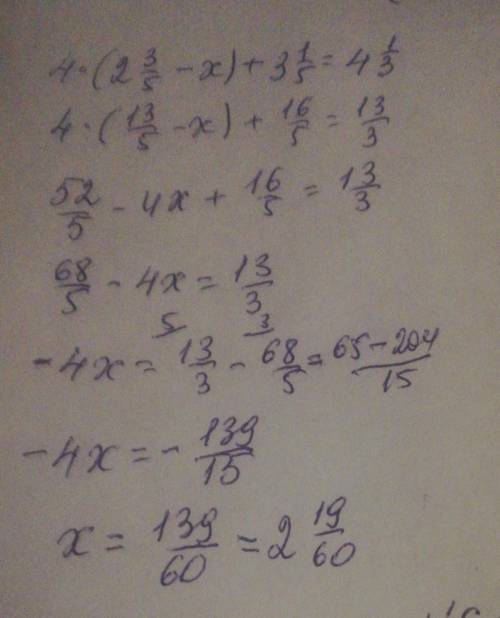 4·(2 3/5 - x) + 3 1/5 = 4 1/3
4·(13/5 - x) + 16/5 = 13/3
52/5 - 4x + 16/5 = 13/3
68/5 - 4x = 13/3
5 3
-4x = 13/3 - 68/5 = 65-204/15
-4x = - 139/15
x = 139/60 = 2 19/60